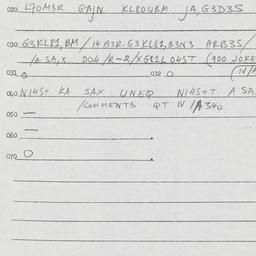 020. L70M3R GAJN KL80UBM JA, G3D3S
030. G3KL81, BM / 14 B3R-G3KL81, B3N3 ARB3S/
/A SA, X D04 /R-2/X GR1L 04ST (900 JOKE
031. O 032 O (IV/A
040. N14S+ KA SAX UNEQ N14S+T A SA
/COMMENTS QT IV /A 340
050. —
060. —
070. O